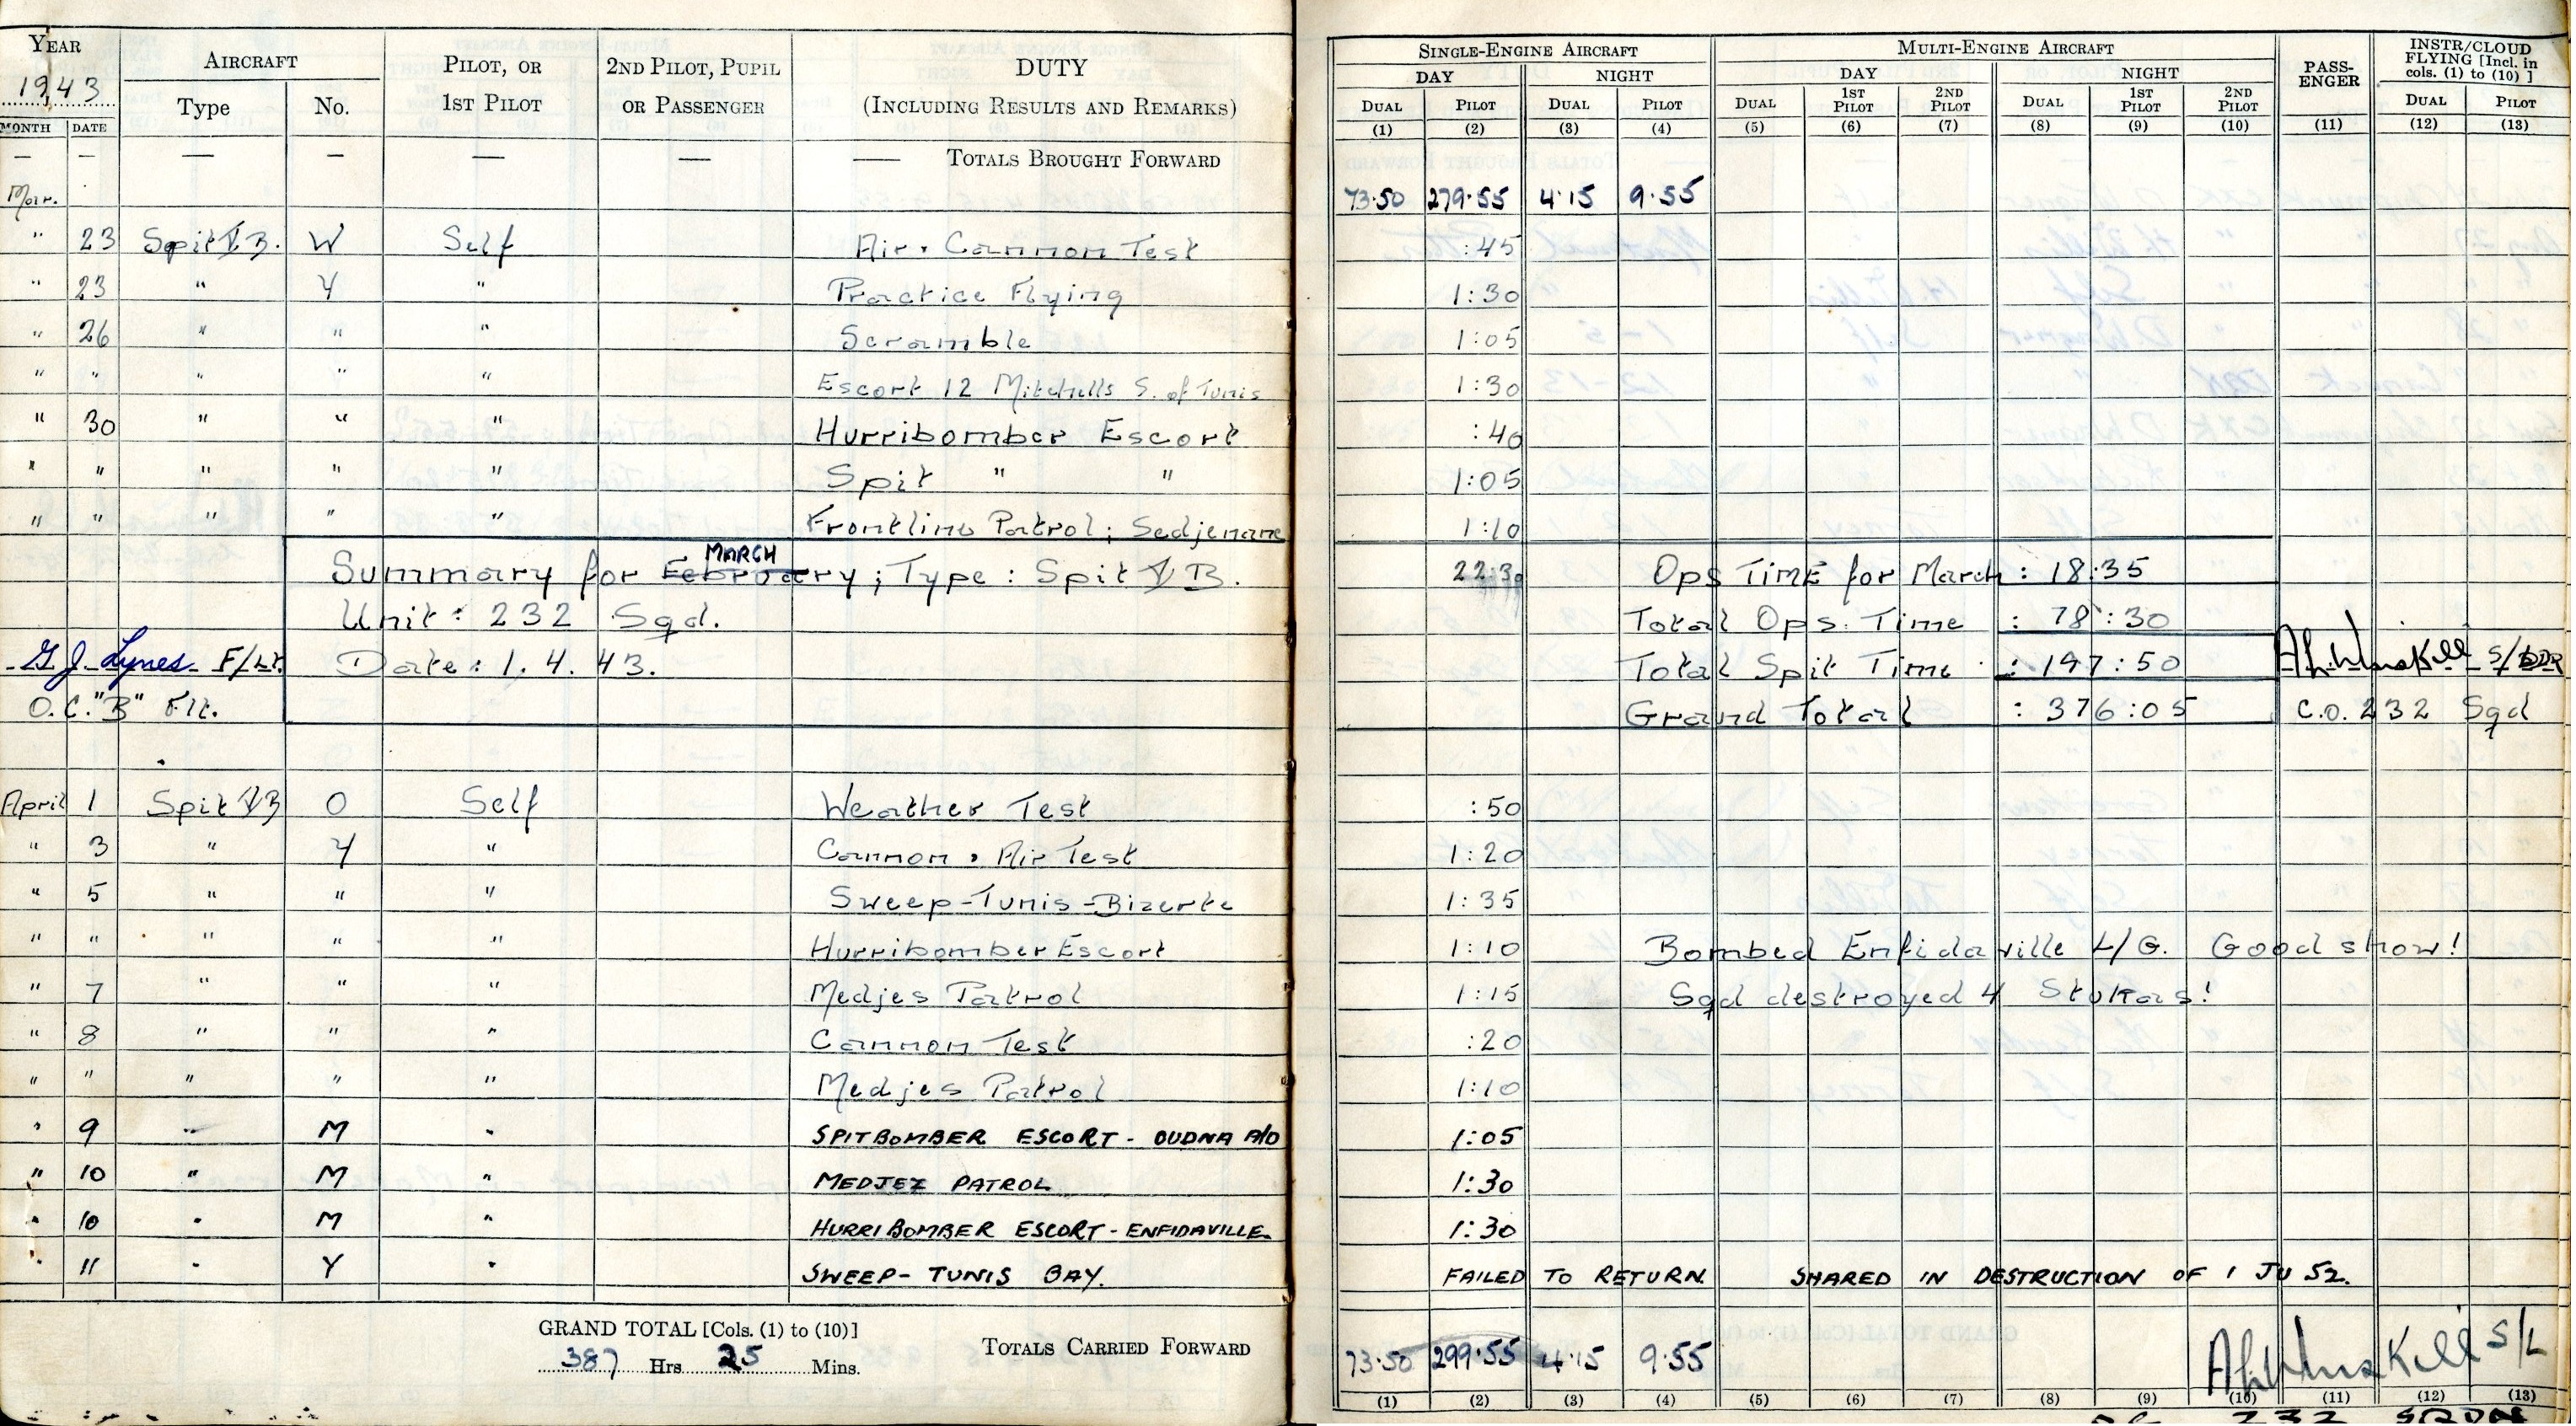 YEAR AIRCRAFT PILOT, OR 2ND PILOT, PUPIL DUTY SINGLE-ENGINE AIRCRAFT MULTI-ENGINE AIRCRAFT PASS- INSTR/CLOUD
1943 Type No. 1ST PILOT OR PASSENGER (INCLUDING RESULTS AND REMARKS) DAY NIGHT DAY NIGHT ENGER FLYING [Incl. in cols. (1) to (10) ]
MONTH DATE DUAL PILOT DUAL PILOT DUAL 1ST PILOT 2ND PILOT DUAL 1ST PILOT 2ND PILOT DUAL PILOT
(1) (2) (3) (4) (5) (6) (7) (8) (9) (10) (11) (12) (13)
— — — — — — — TOTALS BROUGHT FORWARD
Mar. 73.50 279.55 4.15 9.55
" 23 Spit VB. W Self Air. Cannon Test :45
" 23 " Y " Practice Flying 1:30
" 26 " " " Scramble 1:05
" " " " " Escort 12 Mitchells S. of Tunis 1:30
" 30 " " " Hurribomber Escort :40
" " " " " Spit " " 1:05
" " " " " Frontline Patrol; Sedjenane 1:10
MARCH
Summary for February; Type: Spit VB. 22:30 Ops TIME for March: 18:35
Unit: 232 Sqd. Total Ops. Time : 78:30
G J Lynes F/Lt. Date: 1. 4. 43. Total Spit Time : 197:50 S/LDR
O.C. "B" Flt. Grand Total : 376:05 C.O. 232 Sqd
April 1 Spit VB O Self Weather Test :50
" 3 " Y " Cannon. Air Test 1:20
" 5 " " " Sweep-Tunis-Bizerte 1:35
" " " " " Hurribomber Escort 1:10 Bombed Enfidaville L/G. Good show!
" 7 " " " Medjes Patrol 1:15 Sqd destroyed 4 Stukas!
" 8 " " " Cannon Test :20
" " " " " Medjes Patrol 1:10
" 9 " M " SPITBOMBER ESCORT - OUDNA A/D 1:05
" 10 " M " MEDJEZ PATROL 1:30
" 10 " M " HURRIBOMBER ESCORT - ENFIDAVILLE. 1:30
" 11 " Y " SWEEP - TUNIS BAY. FAILED TO RETURN. SHARED IN DESTRUCTION OF 1 JU 52.
GRAND TOTAL [Cols. (1) to (10)]
387 Hrs 25 Mins. TOTALS CARRIED FORWARD 73.50 299.55 4.15 9.55 S/L
(1) (2) (3) (4) (5) (6) (7) (8) (9) (10) (11) (12) (13)